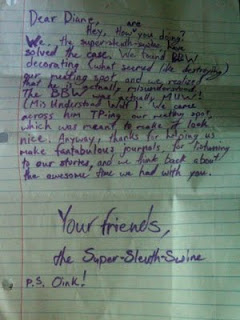 Dear Diane,
Hey, How are you doing?
We, the super-sleuth-swine, have
solved the case. We found BBW
decorating (what seemed like destroying)
our meeting spot, and we realized
that he actually misunderstood.
The BBW was actually MUW!
(Mis Understood Wolf). We came
across him TP-ing our meeting spot,
which was meant to make it look
nice. Anyway, thanks for helping us
make fantabulous journals, for listening
to our stories, and we think back about
the awesome time we had with you.
Your friends,
the Super-Sleuth-Swine
P.S. Oink!